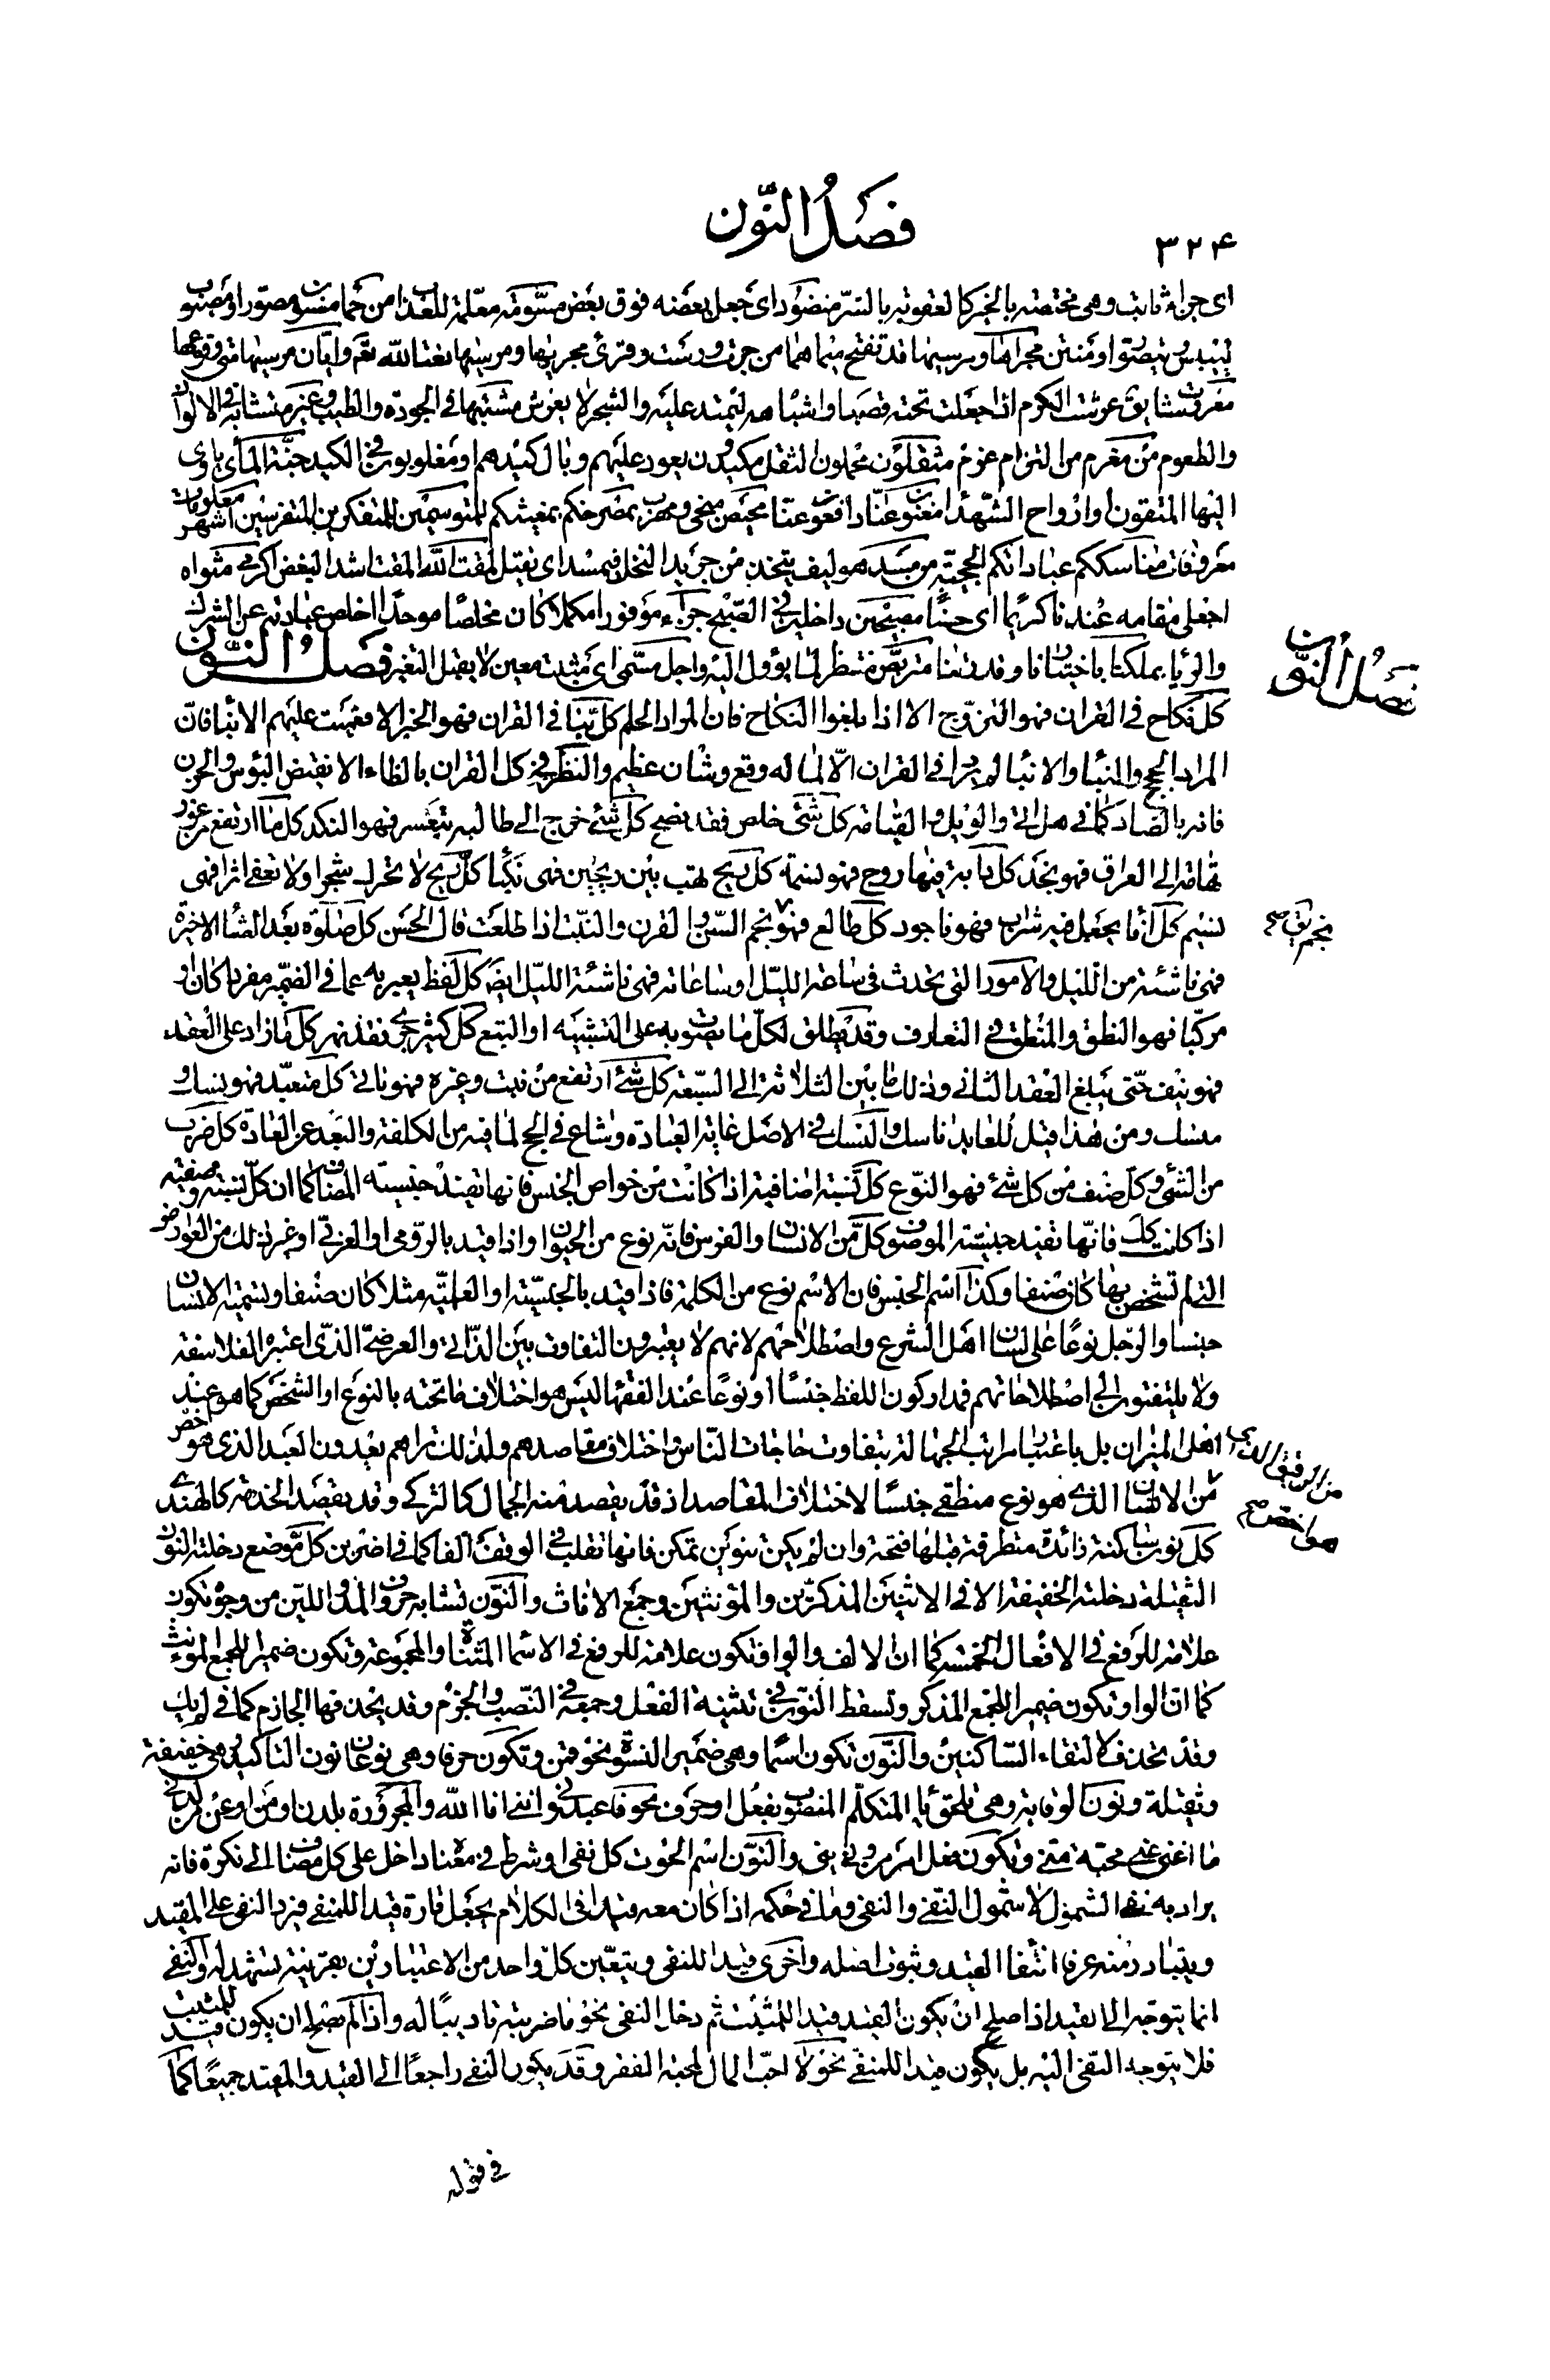 فصل النّون
٣٢۴
اى جزاء ثابت وهى مختصة بالخير كالعقوبة بالشرّ منضود اى جعل بعضه فوق بعض مسوّمة معلّمة للعذاب من حمأ مسنون مصوّر او مصبوب
لييبس ويتصوّر او منتن مجراها ومرسيها قد تفتح ميماهما من جرت ورست وقرئ مجريها ومرسيها نعتا لله ايّان مرسيها متى وقوعها
معروشات من عرشت الكرم اذا جعلت تحته قصبا واشباهه ليمتد عليه والشجر لا يعرش مشتبها فى الجودة والطيب وغير متشابه فى الالوان
والطعوم من مغرم من التزام غرم مثقلون محملون الثقل مكيدون يعود عليهم وبال كيدهم او مغلوبون فى الكيد جنّة المأوى يأوى
اليها المتقون او ارواح الشهداء مغنون عنّا دافعون عنّا محيص منجى ومهرب بمصرخكم بمغيثكم للمتوسمين للمتفكرين المتفرسين اشهر معلومات
معروفات مناسككم عباداتكم الحجيّة من مسد هو ليف يتخذ من جريد النخل فيمسد اى يفتل لمقت الله المقت اشد البغض اكرمى مثواه
اجعلى مقامه عندنا كريما اى حسنا مصبحين داخلين فى الصبح جزاء موفورا مكملا كان مخلصا موحدا اخلص عبادته عن الشرك
والريا بملكنا باختيارنا وقدرتنا متربص منتظر لما يؤول اليه واجل مسمّى اى مثبت معين لا يقبل التغير فصل النّون
فصل النّون
كل نكاح فى القران فهو التزوّج الا اذا بلغوا النكاح فان المراد الحلم كل نبأ فى القران فهو الخبر الا فعميت عليهم الانباء فان
المراد الحجج والنبأ والانباء لم يردا فى القران الّا لما له وقع وشان عظيم والنظر فى كل القران بالظاء الا نقيض البؤس والحزن
فانه بالضاد كما فى هل اتى والويل والقيامة كل شئ خلص فقد نصح كل شئ خرج الى طالبه بتعسر فهو النكد كل ما ارتفع من غور
تهامة الى العراق فهو نجد كل دابة فيها روح فهو نسمة كل ريح تهب بين ريحين فهى نكباء كل ريح لا تحرك شجرا ولا تعفى اثرا فهى
نسيم كل اناء يجعل فيه شراب فهو ناجود كل طالع فهو نجم السن والقرن والنبت اذا طلعت قال الحسن كل صلوة بعد العشاء الاخيرة
نجم يق صح
فهى ناشئة من الليل والامور التى تحدث فى ساعة الليل او ساعاته فهى ناشئة الليل ايضا كل لفظ يعبر به عما فى الضمير مفردا كان او
مركبا فهو النطق والمنطق فى التعارف وقد يطلق لكل ما يصوت به على التشبيه او التبع كل كثير جرى نقد نهر كل ما زاد على العقد
فهو نيف حتى يبلغ العقد الثانى وذلك ما بين الثلاثة الى السبعة كل شئ ارتفع من نبت وغيره فهو ناتى كل متعبّد فهو نسك و
منسك ومن هذا قيل للعابد ناسك والنسك فى الاصل غاية العبادة وشاع فى الحج لما فيه من الكلفة والبعد عن العادة كل ضرب
من الشئ وكل صنف من كل شئ فهو النوع كل نسبة اضافية اذا كانت من خواص الجنس فانها تفيد جنسيته المضاف كما ان كل نسبة وصفيه
اذا كانت كك فانّها تفيد جنسيته الموصوف كل من الانسان والفرس فانه نوع من الحيوان واذا قيد بالرومى او العربى او غير ذلك من العوارض
التى لم تشخص بها كان صنفا وكذا اسم الجنس فان الاسم نوع من الكلمة فاذا قيد بالجنسية او العلمية مثلا كان صنفا وتسمية الانسان
جنسا والرجل نوعا على لسان اهل الشرع واصطلاحهم لانهم لا يعتبرون التفاوت بين الذاتى والعرضى الذى اعتبره الفلاسفة
ولا يلتفتون الى اصطلاحاتهم فمدار كون اللفظ جنسا او نوعا عند الفقهاء ليس هو اختلاف ما تحته بالنوع او الشخص كما هو عند
اهل الميزان بل باعتبار مراتب الجهالة بتفاوت حاجات الناس واختلاف مقاصدهم ولذلك تراهم يعدون العبد الذى هو اخص
من الرقيق الذى
من الانسان الذى هو نوع منطقى جنسا لاختلاف المقاصد اذ قد يقصد منه الجمال كالتركى وقد يقصد الخدمة كالهندى
هو اخص صح
كل نون ساكنة زائدة متطرفة قبلها فتحة وان لم يكن تنوين تمكن فانها تقلب فى الوقف الفا كما فى اضربن كل موضع دخلته النون
الثقيلة دخلته الخفيفة الا فى الاثنين المذكرين والمؤنثين وجمع الاناث والنون تشابه حروف المد واللين من وجوه تكون
علامة للرفع فى الافعال الخمسة كما ان الالف والواو تكون علامة للرفع فى الاسماء المثناة والمجموعة وتكون ضميرا للجمع المؤنث
كما ان الواو تكون ضميرا للجمع المذكر وتسقط النون فى تثنية الفعل وجمعه فى النصب والجزم وقد يحذفها الجازم كما فى لم يك
وقد تحذف لالتقاء الساكنين والنون تكون اسما وهى ضمير النسوة نحو قمن وتكون حرفا وهى نوعان نون التاكيد وهى خفيفة
وثقيلة ونون الوقاية وهى تلحق ياء المتكلم المنصوب بفعل او حرف نحو فاعبدنى واننى انا الله والمجرورة بلدن او من او عن من لدنى
ما اغنى عنى محبة منى وتكون فعل امر من ونى ينى والنون اسم الحوت كل نفى او شرط فى معناه داخل على كل مضاف الى نكرة فانه
يراد به نفى الشمول لا شمول النفى والنفى وما فى حكمه اذا كان معه قيد فى الكلام يجعل تارة قيدا للمنفى فيرد النفى على المقيد
ويتبادر منه عرفا انتفاء القيد وثبوت اصله واخرى قيدا للنفى ويتعين كل واحد من الاعتبارين بقرينة تشهد له والنفى
انما يتوجه الى القيد اذا صلح ان يكون القيد قيدا للمثبت ثم دخل النفى نحو ما ضربته تاديبا له واذا لم يصلح ان يكون قيد للمثبت
فلا يتوجه النفى اليه بل يكون قيدا للمنفى نحو لا احب المال لمحبة الفقر وقد يكون النفى راجعا الى القيد والمقيد جميعا كما
فى قوله